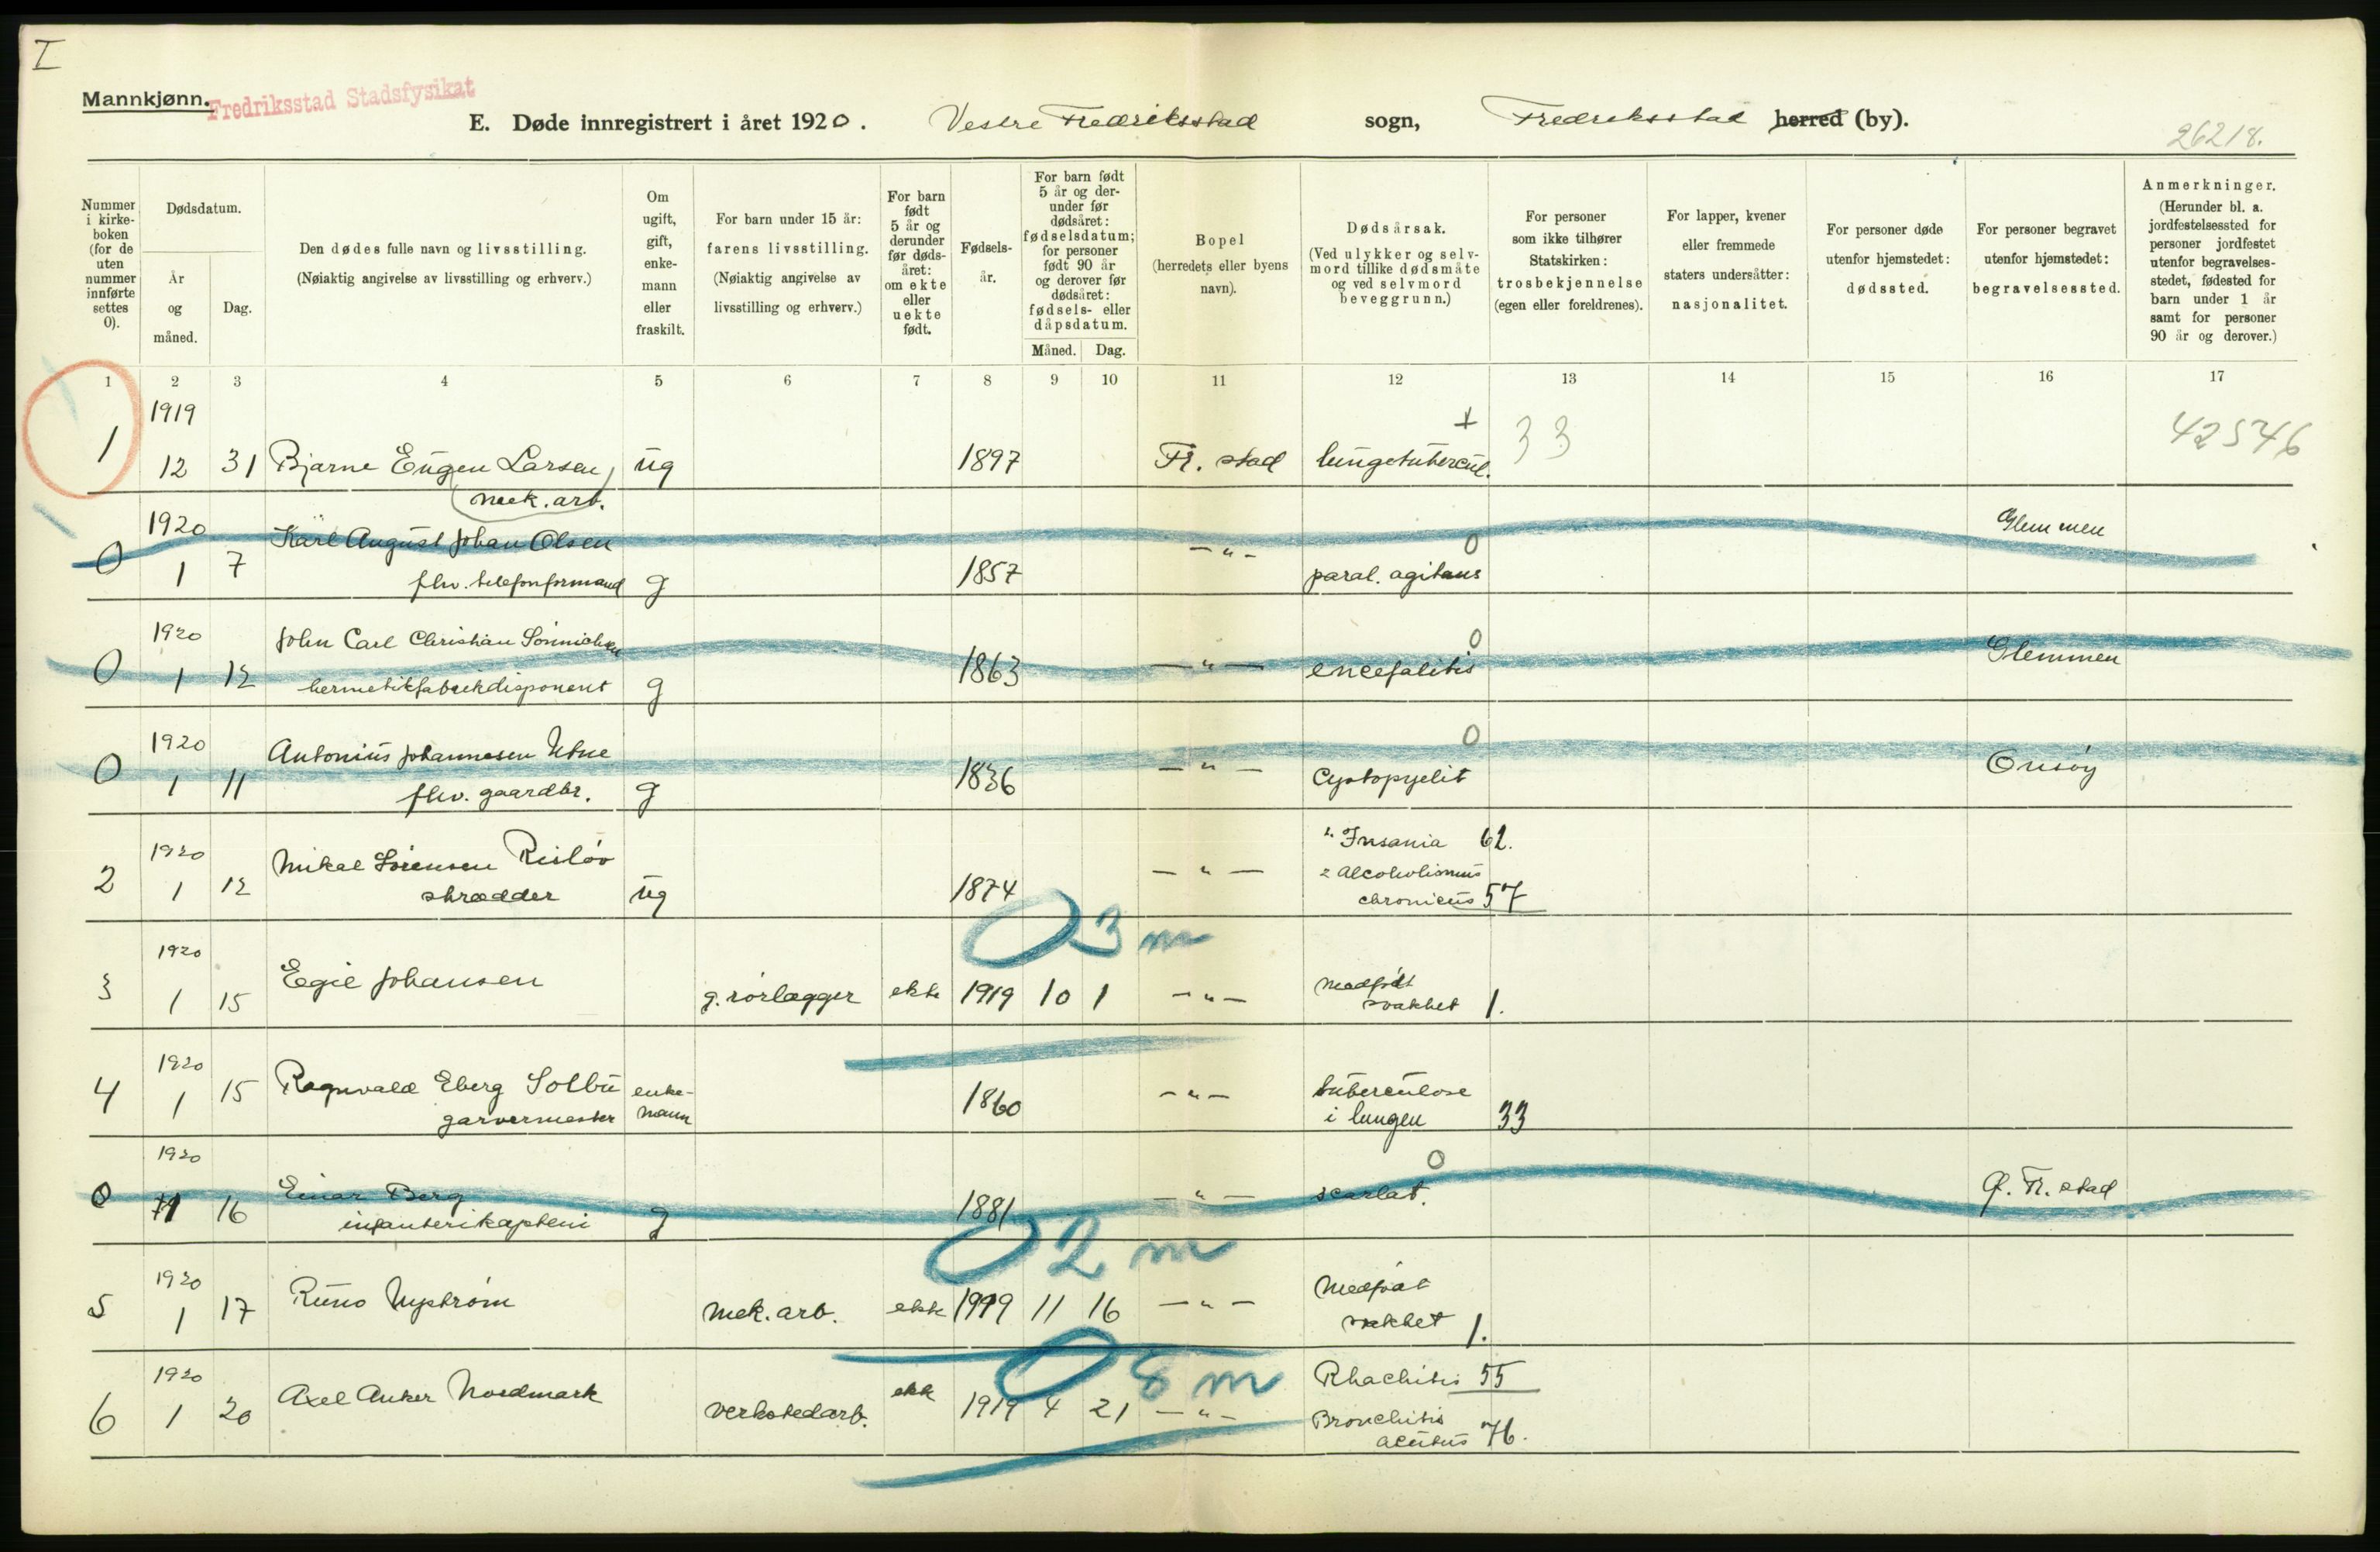 I
Mannkjønn.
Fredriksstad Stadsfysikat
E. Døde innregistrert i året 1920. Vestre Fredriksstad sogn, Fredriksstad herred (by).
26218.
Nummer i kirke-boken (for de uten nummer innførte settes 0).
Dødsdatum.
År og måned.
Dag.
Den dødes fulle navn og livsstilling.
(Nøiaktig angivelse av livsstilling og erhverv.)
Om ugift, gift, enke-mann eller fraskilt.
For barn under 15 år:
farens livsstilling.
(Nøiaktig angivelse av livsstilling og erhverv.)
For barn født 5 år og derunder før døds-året: om ekte eller uekte født.
Fødsels-år.
For barn født 5 år og der-under før dødsåret: fødselsdatum; for personer født 90 år og derover før dødsåret: fødsels- eller dåpsdatum.
Måned. Dag.
Bopel
(herredets eller byens navn).
Dødsårsak.
(Ved ulykker og selv-mord tillike dødsmåte og ved selvmord beveggrunn.)
For personer som ikke tilhører Statskirken: trosbekjennelse (egen eller foreldrenes).
For lapper, kvener eller fremmede staters undersåtter: nasjonalitet.
For personer døde utenfor hjemstedet: dødssted.
For personer begravet utenfor hjemstedet: begravelsessted.
Anmerkninger.
(Herunder bl. a. jordfestelsessted for personer jordfestet utenfor begravelses-stedet, fødested for barn under 1 år samt for personer 90 år og derover.)
1 2 3 4 5 6 7 8 9 10 11 12 13 14 15 16 17
1919
1 12 31 Bjarne Eugen Larsen ug 1897 Fr. stad lungetubercul. + 33 42546
mek. arb.
1920 Karl August Johan Olsen Glemmen
0 1 7 fhv. telefonformand g 1857 – " – 0 paral. agitans
1920 John Carl Christian Sønnichsen 0
0 1 12 hermetikfabrikdisponent g 1863 – " – encefalitis Glemmen
1920 Antonius Johannesen Utne 0
0 1 11 fhv. gaardbr. g 1836 – " – Cystopyelit Onsøy
1920 Mikal Sørensen Reiløv 1. Insania 62.
2 1 12 skrædder ug 1874 – " – 2 Alcoholismus
chronicus 57
0 3 m
1920 Egil Johansen medfødt
3 1 15 g. rørlægger ekte 1919 10 1 – " – svakhet 1.
1920 Ragnvald Eberg Solbu enke- tuberculose
4 1 15 garvermester mann 1860 – " – i lungen 33
1920 Einar Berg 0
0 1 16 infanterikaptein g 1881 – " – scarlat. Ø. Fr. stad
0 2 m
1920 Runo Nystrøm Medfødt
5 1 17 mek. arb. ekte 1919 11 16 – " – svakhet 1.
0 8 m
1920 Axel Anker Nordmark ekte Rhachitis 55
6 1 20 verkstedarb. 1919 4 21 – " – Bronchitis
acutus 76.